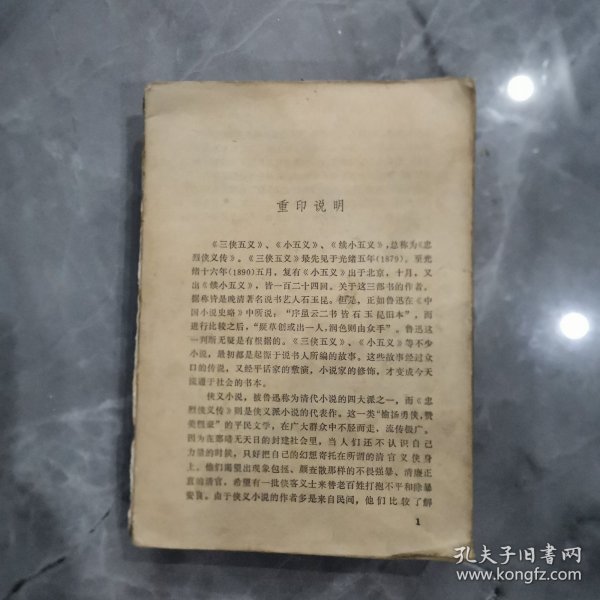 重印说明
《三侠五义》、《小五义》、《续小五义》,总称为《忠
烈侠义传》。《三侠五义》最先见于光绪五年(1879)。至光
绪十六年(1890)五月,复有《小五义》出于北京,十月,又
出《续小五义》,皆一百二十四回。关于这三部书的作者,
据称皆是晚清著名说书艺人石玉昆。但是,正如鲁迅在《中
国小说史略》中所说:“序虽云二书皆石玉昆旧本”,而
进行比较之后,“疑草创或出一人,润色则由众手”。鲁迅这
一判断无疑是有根据的。《三侠五义》、《小五义》等不少
小说,最初都是起源于说书人所编的故事。这些故事经过众
口的传说,又经平话家的敷演,小说家的修饰,才变成今天
流通于社会的书本。
侠义小说,被鲁迅称为清代小说的四大派之一,而《忠
烈侠义传》则是侠义派小说的代表作。这一类“揄扬勇侠,赞
美粗豪”的平民文学,在广大群众中不胫而走,流传极广。
因为在那暗无天日的封建社会里,当人们还不认识自己
力量的时候,只好把自己的幻想寄托在所谓的清官义侠身
上。他们渴望出现象包拯、颜查散那样的不畏强暴、清廉正
直的清官,希望有一批侠客义士来替老百姓打抱不平和除暴
安良。由于侠义小说的作者多是来自民间,他们比较了解
1
孔夫子旧书网
www.kongfz.com